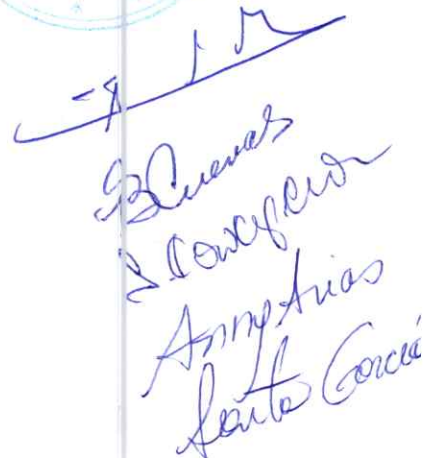 B Cuevas
S Concepción
Anny Arias
Santa García